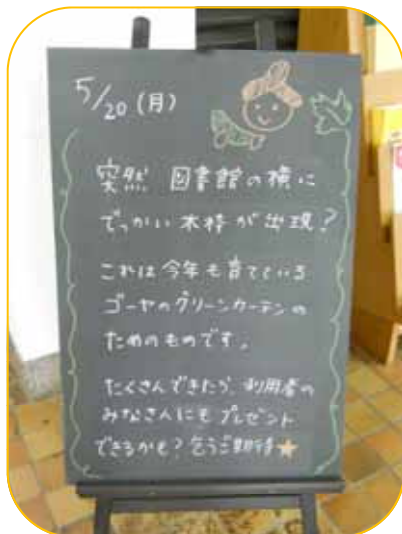 5/20(月)
突然 図書館の横に
でっかい木枠が出現?
これは今年も育てている
ゴーヤのグリーンカーテンの
ためのものです。
たくさんできたら、利用者の
みなさんにもプレゼント
できるかも?乞うご期待★